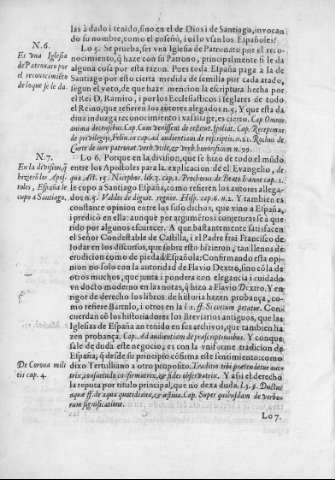 las à dalo i tenido, sino en el de Dios i de Santiago, invocan
do su nombre, como el enseñò, i oilo usan los Españoles?
N.6.
Es una Iglesia
de Patronato por
el reconocimiēto
de lo que se le da.
Lo 5. Se prueba, ser una Iglesia de Patronato por el reco-
nocimiento, q̃ haze con su Patrono, principalmente si le da
alguna cosa por esta razon. Pues toda España paga a la de
Santiago por esto cierta medida de semilla por cada arado,
segun el voto, de que haze mencion la escritura hecha por
el Rei D. Ramiro, i por los Eclesiasticos i seglares de todo
el Reino, que refieren los autores allegados n.5. Y que esta da
diva induzga reconocimiento, es cierto. Cap.
de privilegijs, Felin. in cap.
N.7.
En la division, q̃
hizierō los Apos-
toles, España le
cupo a Santiago.
Lo 6. Porque en la division, que se hizo de todo el mūdo
entre los Apostoles para la explicacion de el Evangelio, de
que, Act. 15. Nicephor. lib.3. cap.1.
le cupo a Santiago España, como refieren los autores allega-
dos n.5. Valdes de dignit. regum. Hisp. cap.6. n.2. Y tambien es
constante opinion entre los suso dichos, que vino a España,
i predicò en ella: aunque por argumētos i conjeturas se è que
rido por algunos escurecer. A que bastantemente satisfacen
el Señor Condestable de Castilla, i el Padre frai Francisco de
Jodar en los discursos, que sobre esto hizieron, tan llenos de
erudicion como de piedad Española: Confirmando esta opi
nion no solo con la autoridad de Flavio Dextro, sino cō la de
otros muchos, que junta i pondera con elegancia i cuidado
un docto moderno en las notas, q̃ hizo a Flavio Dextro. Y en ri
gor de derecho los libros de historia hazen probança, co-
mo refiere Bartulo, i otros en la l.1. ff. Si certum petatur. Como
quiera cō los historiadores los Breviarios antiguos, que las
Iglesias de España an tenido en sus archivos, que tambien ha
zen probança. Cap. Ad audientiam de praescriptionibus. Y conque
sale de duda este negocio, es con la uniforme tradicion de
España, q̃ desde su principio cōfirma este sentimiento: como
De Corona mili
tis cap. 4.
dixo Tertulliano a otro proposito. Traditio tibi praetendetur auc-
trix, consuetudo confirmatrix, & fides observatrix. Y assi el derecho
la reputa por titulo principal, que no dexa duda. l.3. §. Ductus
aquae ff. de aqua quotidiana, & aestiva. Cap. Super quibusdam de verbo-
rum significatione.
Lo 7.